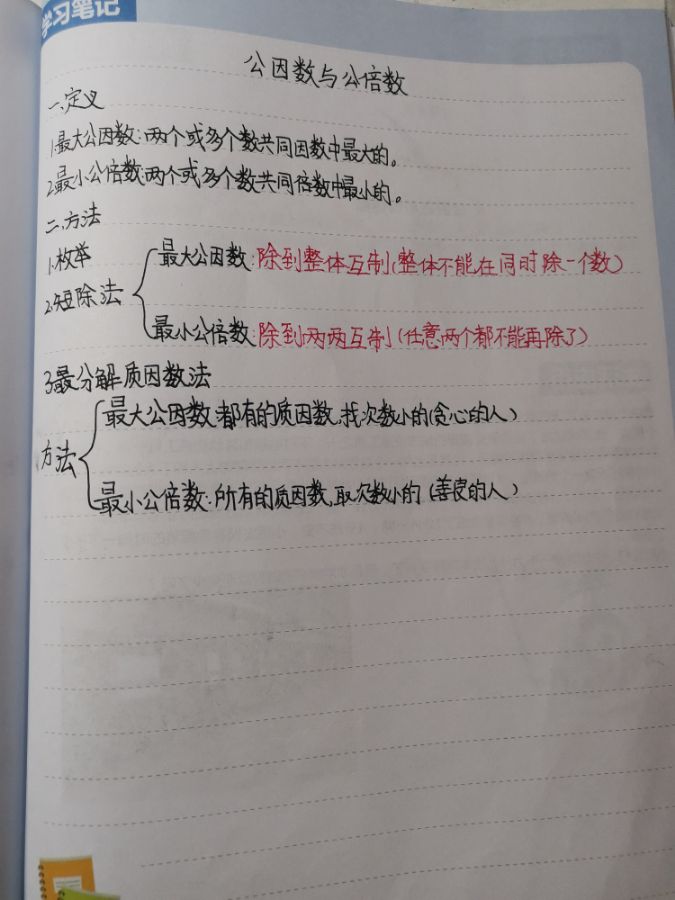 学习笔记
公因数与公倍数
一、定义
1.最大公因数:两个或多个数共同因数中最大的。
2.最小公倍数:两个或多个数共同倍数中最小的。
二、方法
1.枚举
2.短除法
最大公因数:除到整体互制(整体不能在同时除一个数)
最小公倍数:除到两两互制(任意两个都不能再除了)
3.最分解质因数法
方法
最大公因数:都有的质因数,找次数小的(贪心的人)
最小公倍数:所有的质因数,取次数小的(善良的人)